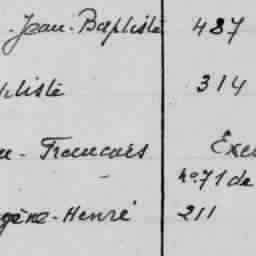 Jean-Baptiste 487
ptiste 314
- Francois Exe
n° 71 de
gène-Henri 211